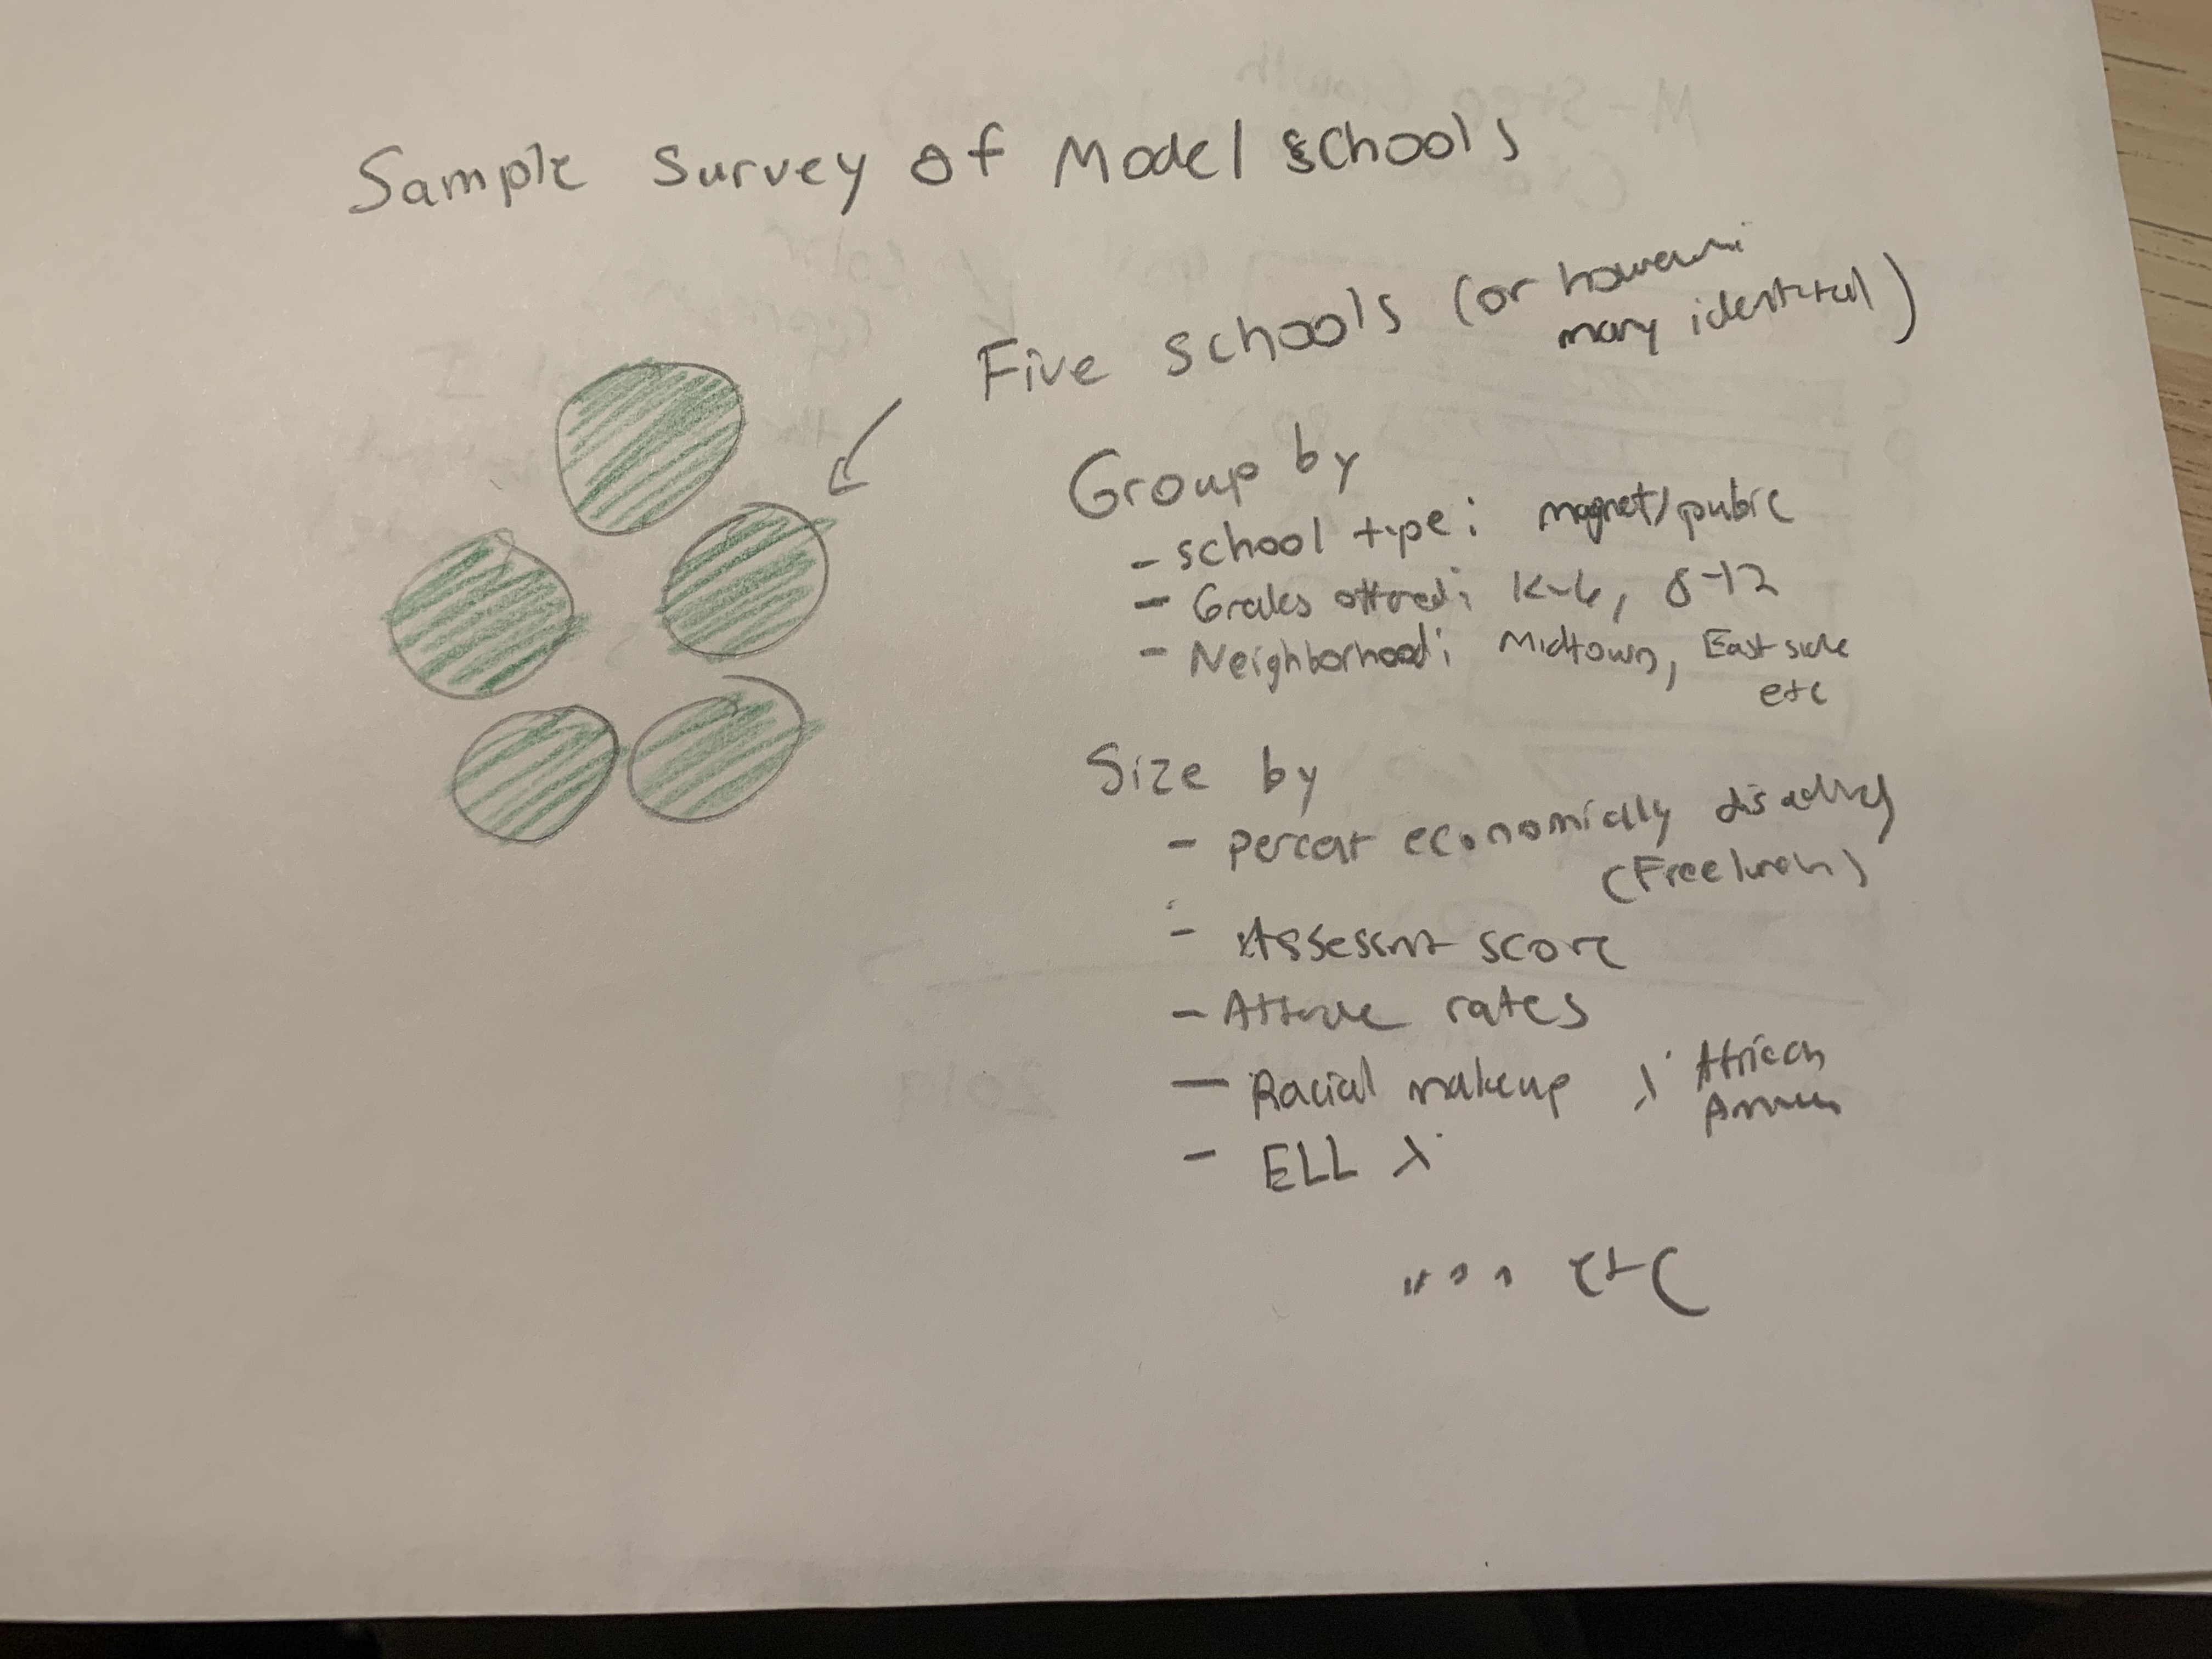 Sample survey of Model schools
Five schools (or however
many identified)
Group by
- school type: magnet/public
- Grades offered: K-6, 6-12
- Neighborhood: Midtown, East side
etc
Size by
- percent economically disadved
(Free lunch)
- Assessmt score
- rates
- Racial makeup % African
- ELL %
etc